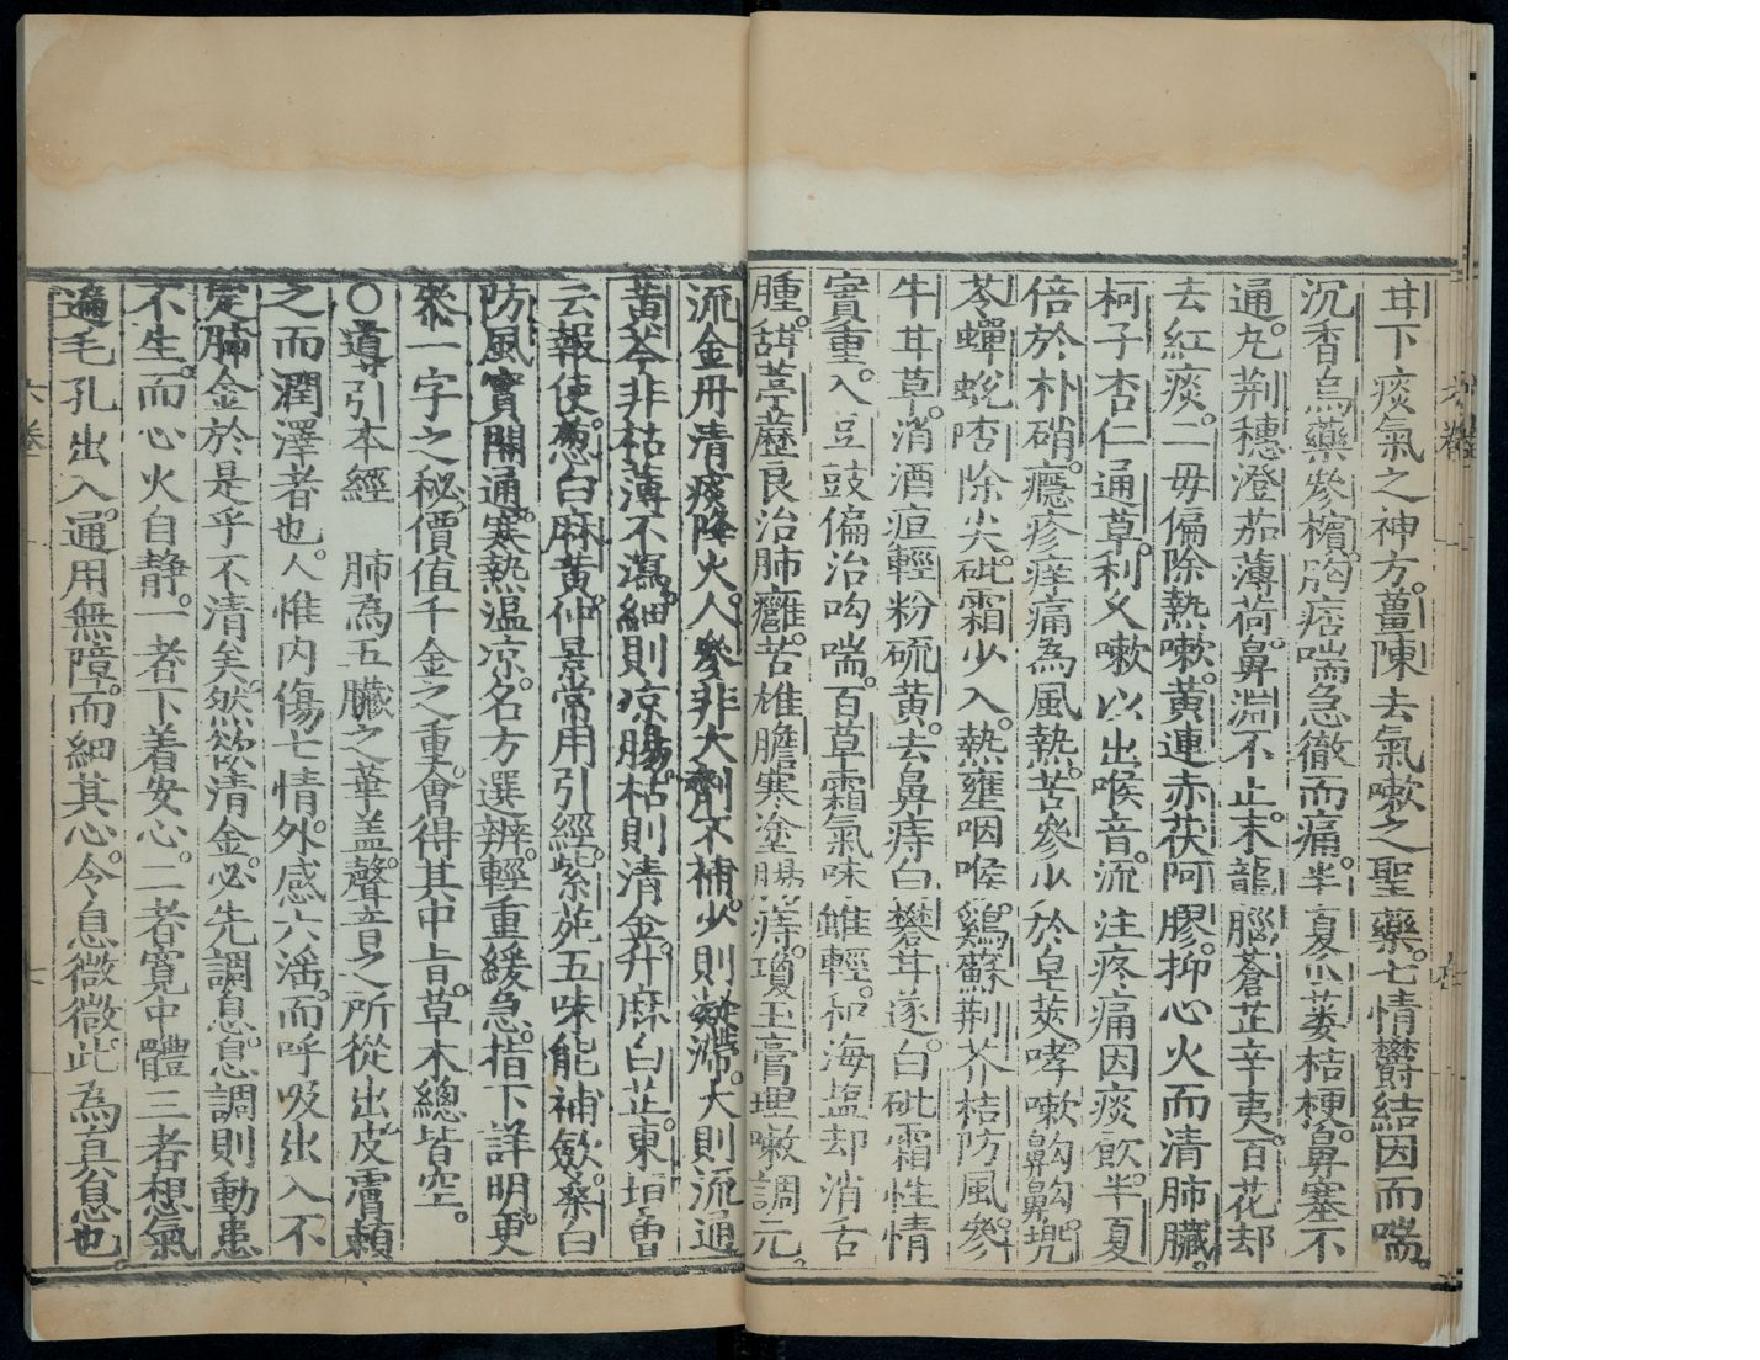 苷下痰氣之神方薑陳去氣嗽之聖藥七情欝結因而喘
沉香烏藥參檳胸痞喘急徹而痛半夏瓜蒌桔梗鼻塞不
通丸荆穗澄茄薄荷鼻淵不止末龍腦蒼芷辛夷百花却
去紅痰二毋偏除熱嗽黄連赤茯阿膠抑心火而清肺臟
柯子杏仁通草利久嗽以出喉音流注疼痛因痰飲半夏
倍於朴硝癮疹痒痛為風熱苦參少於皂莢哮嗽齁齁兜
苓蟬蛻杏除尖砒霜少入熱壅咽喉鷄蘇荆芥桔防風參
牛苷草消酒疸輕粉硫黄去鼻痔白礬苷遂白砒霜性情
實重入豆豉偏治呴喘百草霜氣味雖輕和海塩却消舌
腫甜葶藶良治肺癰苦雄膽寒塗腸痔瓊玉膏理嗽調元
流金丹清痰降火人參非大劑不補少則凝滞大則流通
黄芩非枯薄不瀉細則凉腸枯則清金升麻白芷東垣曽
云報使葱白麻黄仲景常用引經紫苑五味能補斂桑白
防風實開通寒熱温凉名方選辨輕重緩急指下詳明更
叅一字之秘價值千金之重會得其中旨草木總皆空
〇導引本經　肺為五臟之華盖聲音之所從出皮膚頼
之而潤澤者也人惟内傷七情外感六滛而呼吸出入不
定肺金於是乎不清矣然欲清金必先調息息調則動患
不生而心火自静一者下着安心二者寛中體三者想氣
遍毛孔出入通用無障而細其心令息微微此為真息也